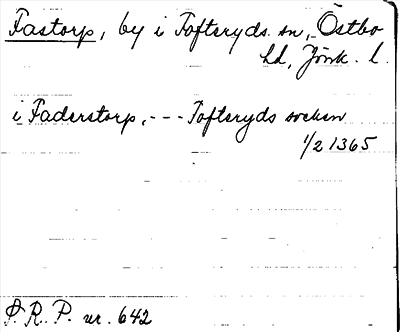 Fastorp, by i Tofteryds sn, Östbo
hd, Jönk. l.
i Faderstorp, --- Tofteryds socken
1/2 1365
S. R. P. nr. 642